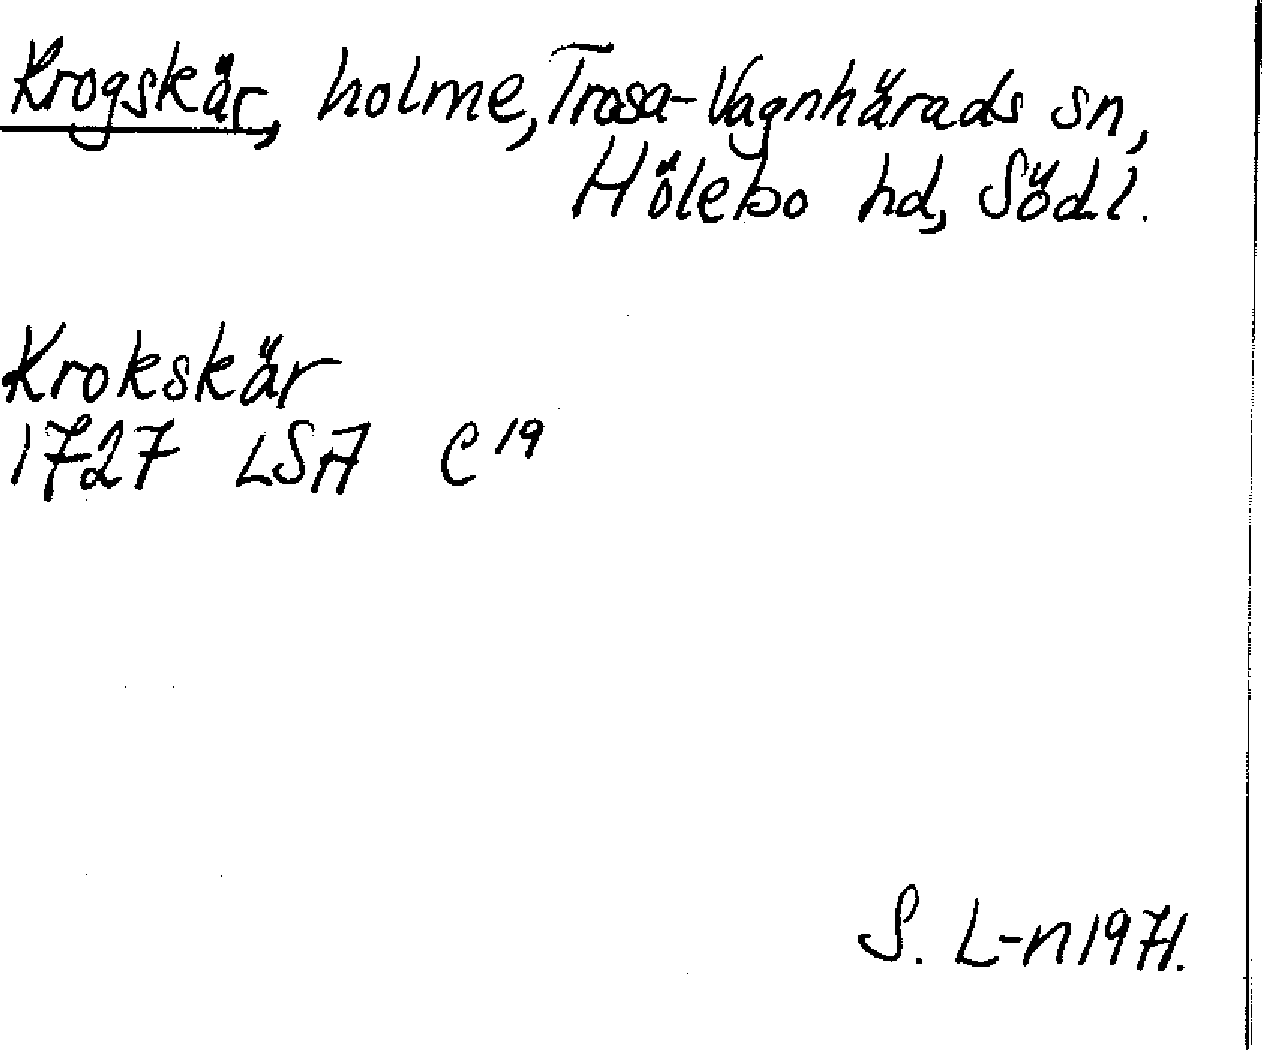 Krogskär, holme, Trosa-Vagnhärads sn,
Hölebo hd, Södl.
Krokskär
1727 LSA C19
S. L-n 1971.